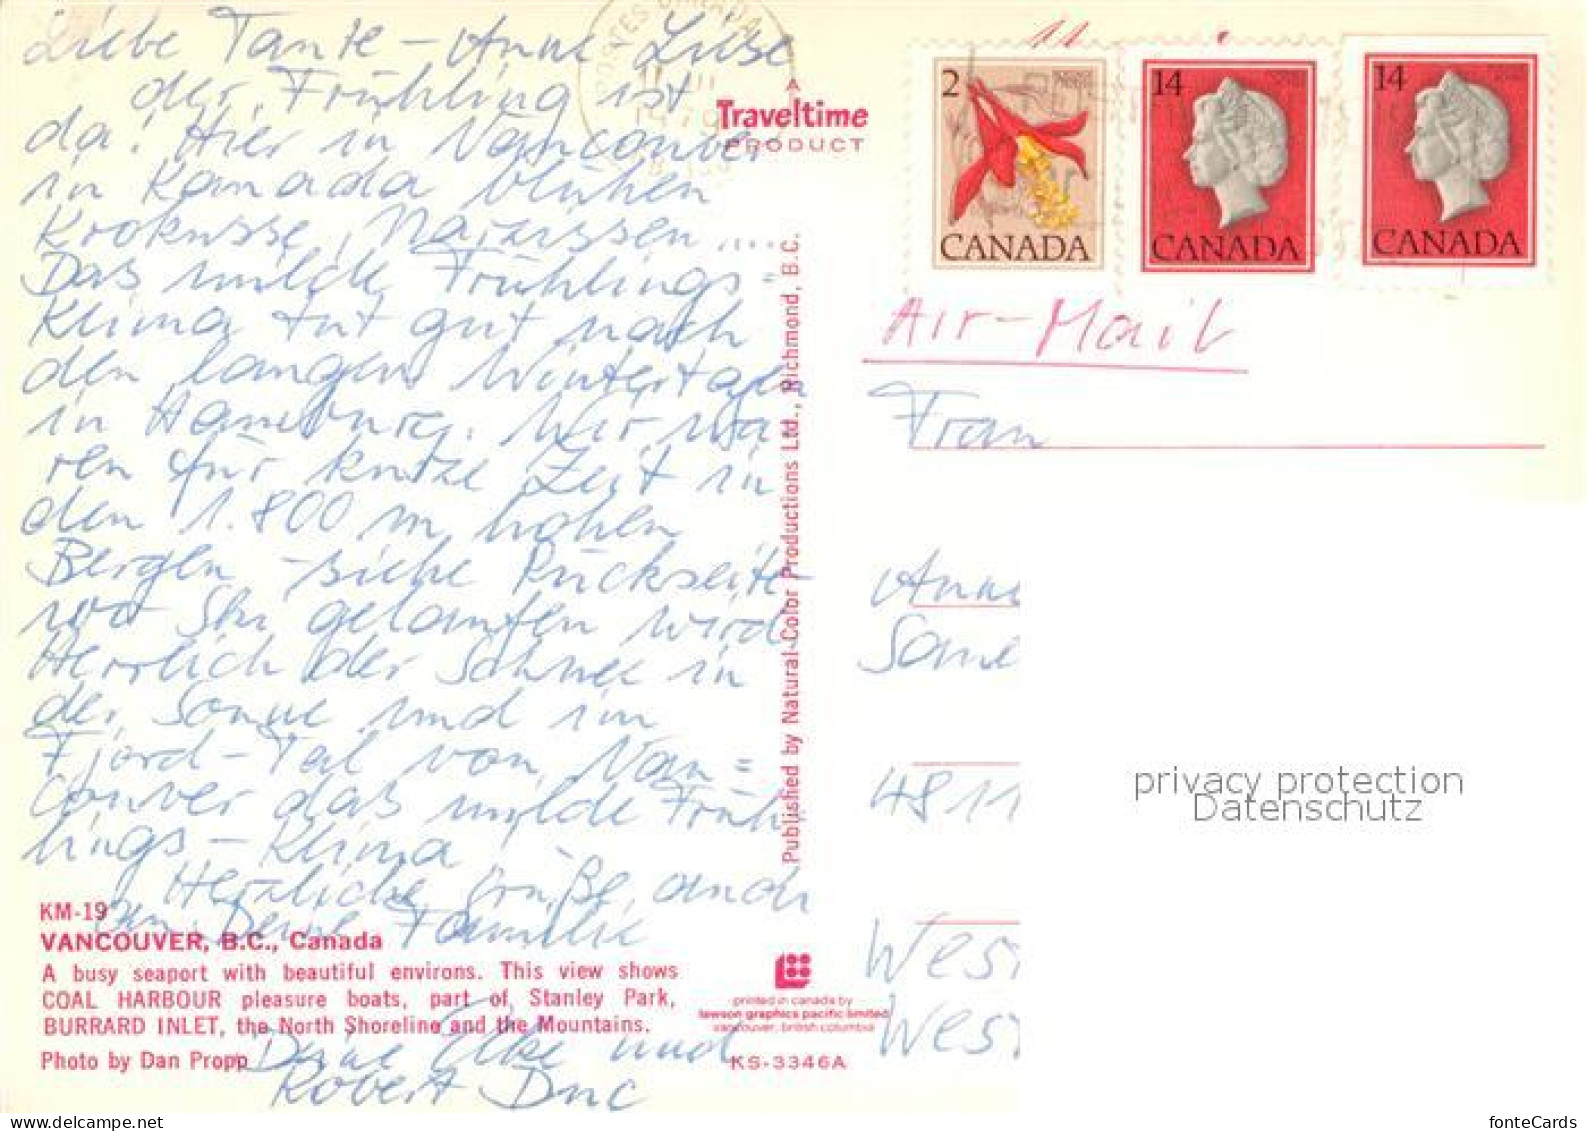 Liebe Tante-Anne-Liese
der Frühling ist
da! Hier in Vancouver
in Kanada blühen
Krokusse, Narzissen....
Das milde Frühlings=
Klima tut gut nach
den langen Wintertagen
in Hamburg. Wir wa
ren für kurze Zeit in
den 1.800 m hohen
Bergen - siehe Rückseite
wo Ski gelaufen wird.
Herrlich der Schnee in
der Sonne und im
Fjord-Tal von Van=
couver das milde Früh
lings-Klima
Herzliche Grüße, auch
an Deine Familie
Deine Elke und
Robert
KM-19
VANCOUVER, B.C., Canada
A busy seaport with beautiful environs. This view shows
COAL HARBOUR pleasure boats, part of Stanley Park,
BURRARD INLET, the North Shoreline and the Mountains.
Photo by Dan Propp
A
Traveltime
PRODUCT
Published by Natural-Color Productions Ltd., Richmond, B.C.
printed in canada by
lawson graphics pacific limited
vancouver, british columbia
KS-3346A
2
CANADA
14
CANADA
14
CANADA
Air-Mail
Frau
Anne
4811
West
West
privacy protection
Datenschutz
www.delcampe.net
fonteCards